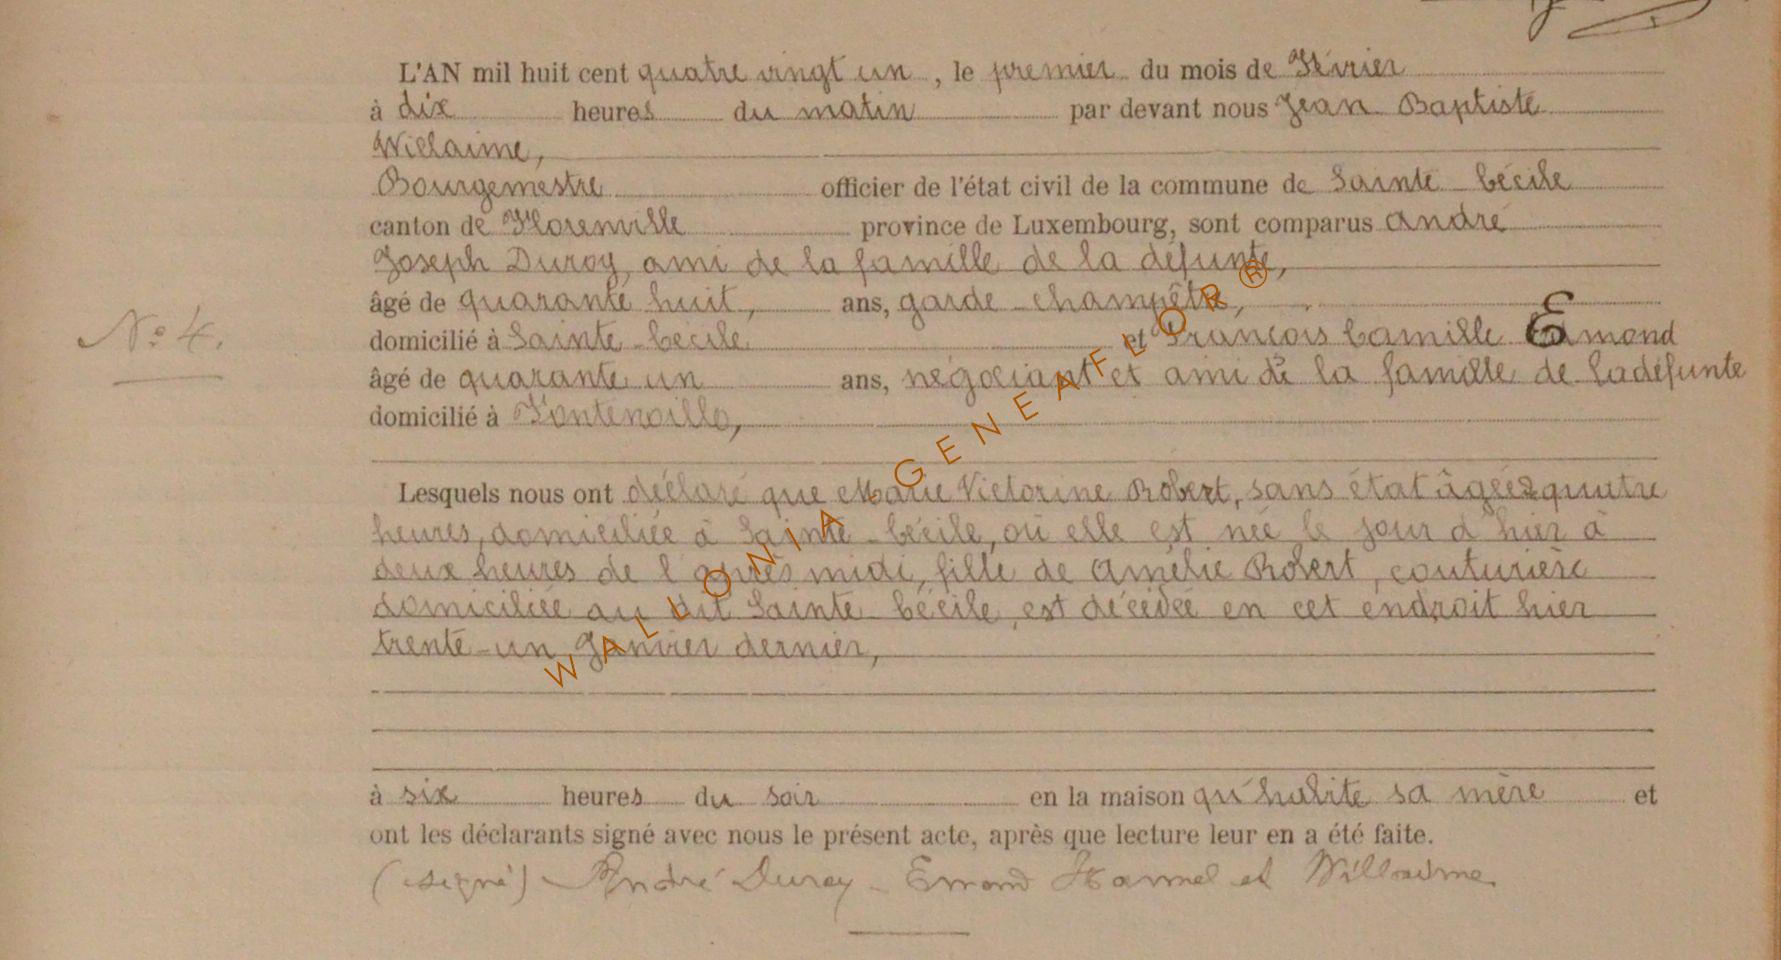 L'AN mil huit cent quatre vingt un, le premier du mois de Février
à dix heures du matin par devant nous Jean Baptiste
Willaime,
Bourgemestre officier de l'état civil de la commune de Sainte-Cécile
canton de Florenville province de Luxembourg, sont comparus andré
Joseph Duroy, ami de la famille de la défunte,
âgé de quarante huit, ans, garde-champêtre,
N° 4.
domicilié à Sainte-Cécile et François Camille Emond
âgé de quarante un ans, négociant et ami de la famille de la défunte
domicilié à Fontenoille,
Lesquels nous ont déclaré que Marie Victorine Robert, sans état âgée quatre
heures, domiciliée à Sainte-Cécile, où elle est née le jour d'hier à
deux heures de l'après midi, fille de Amélie Robert, couturière
domiciliée au dit Sainte-Cécile, est décédée en cet endroit hier
trente-un Janvier dernier,
à six heures du soir en la maison qu'habite sa mère et
ont les déclarants signé avec nous le présent acte, après que lecture leur en a été faite.
(signé) André Duroy - Emond Hamel et Willaime
WALLONIA GENEAFLOR ®